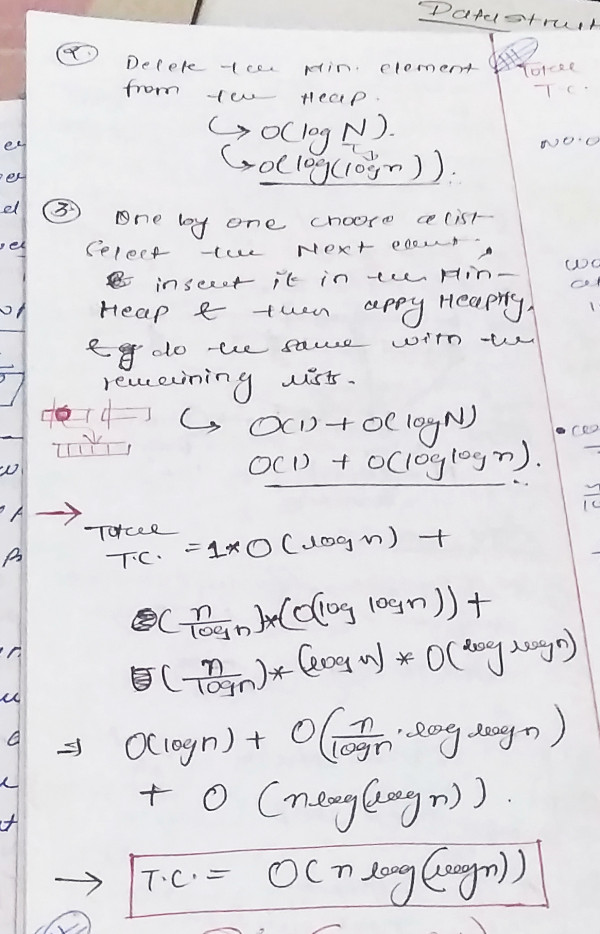 Datastruct
② Delete the Min. element
from the Heap.
↳ O(log N).
↳ O(log(logn)).
Total
T.C.
NO.O
③ One by one choose a list
Select the Next elemt.
& insert it in the Min-
Heap & then appy Heapify.
& do the same with the
remaining lists.
↳ O(1) + O(logN)
O(1) + O(loglogn).
→ Total
T.C. = 1*O(logn) +
(n/logn)*(O(log logn)) +
(n/logn)*(logn)*O(log logn)
⇒ O(logn) + O(n/logn · log logn)
+ O (nlog(logn)).
→ T.C. = O(n log(logn))